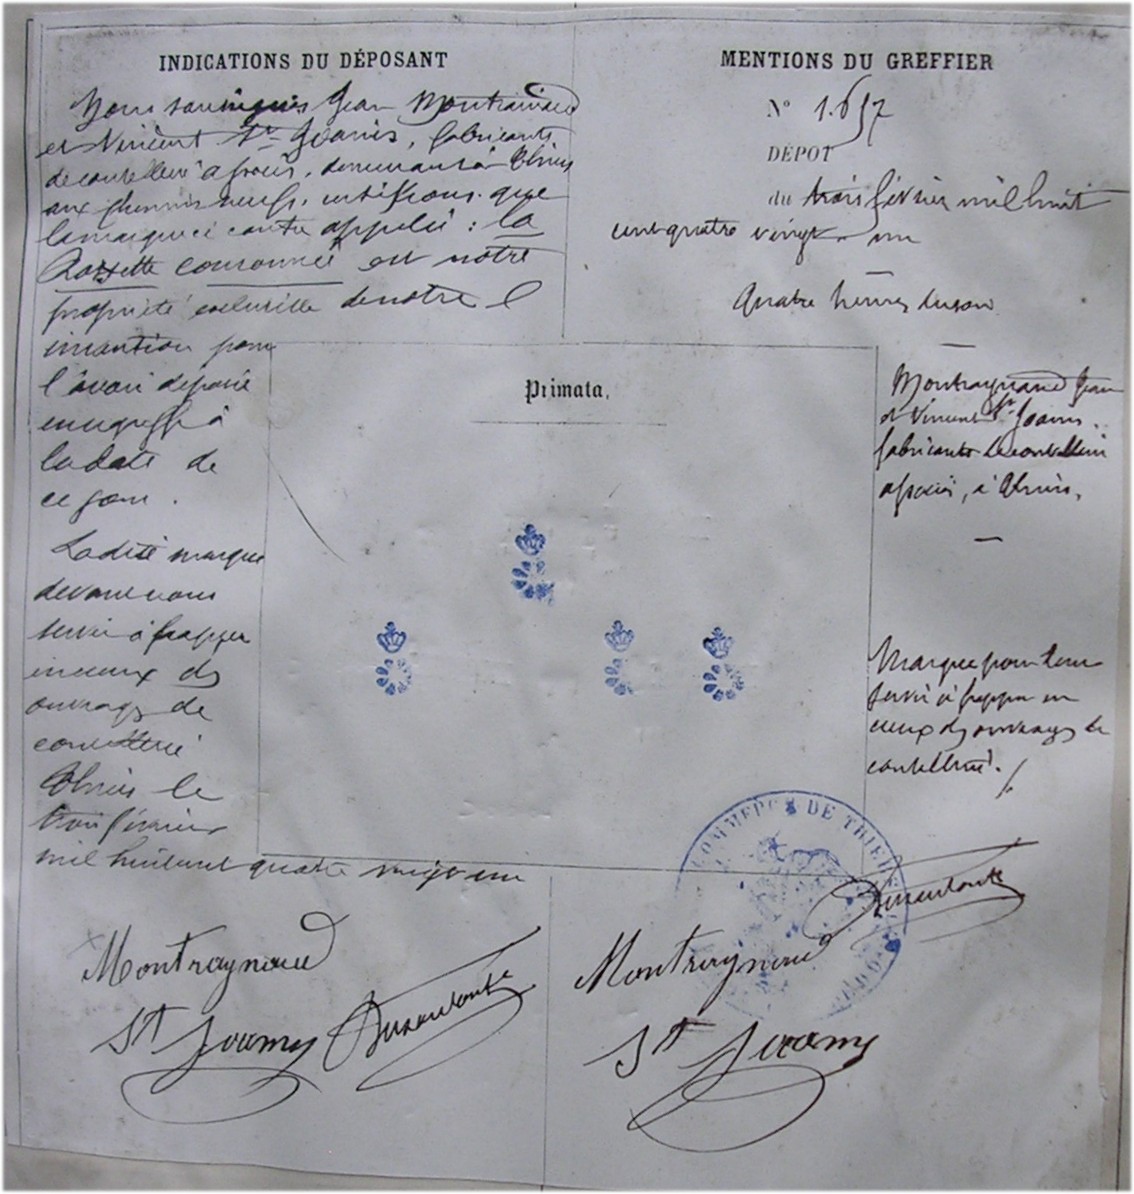 INDICATIONS DU DÉPOSANT
Nous soussignés Jean Montraynaud
et Vincent St Joanis, fabricants
de coutellerie associés, demeurant à Thiers
aux chemins neufs, certifions que
la marque ci contre appelée : la
Rosette couronnée est notre
propriété exclusive de notre
invention pour
l'avoir déposée
au greffe à
la date de
ce jour.
La dite marque
devant nous
servir à frapper
en creux des
ouvrages de
coutellerie
Thiers le
trois février
mil huit cent quatre vingt un
Montraynaud
St Joanis
MENTIONS DU GREFFIER
N° 1.657
DÉPOT
du trois février mil huit
cent quatre vingt un
Quatre heures du soir
Primata.
Montraynaud Jean
et Vincent St Joanis
fabricants de coutellerie
associés, à Thiers.
Marque pour leur
servir à frapper en
creux des ouvrages de
coutellerie.
COMMERCE DE THIERS
Montraynaud
St Joanis